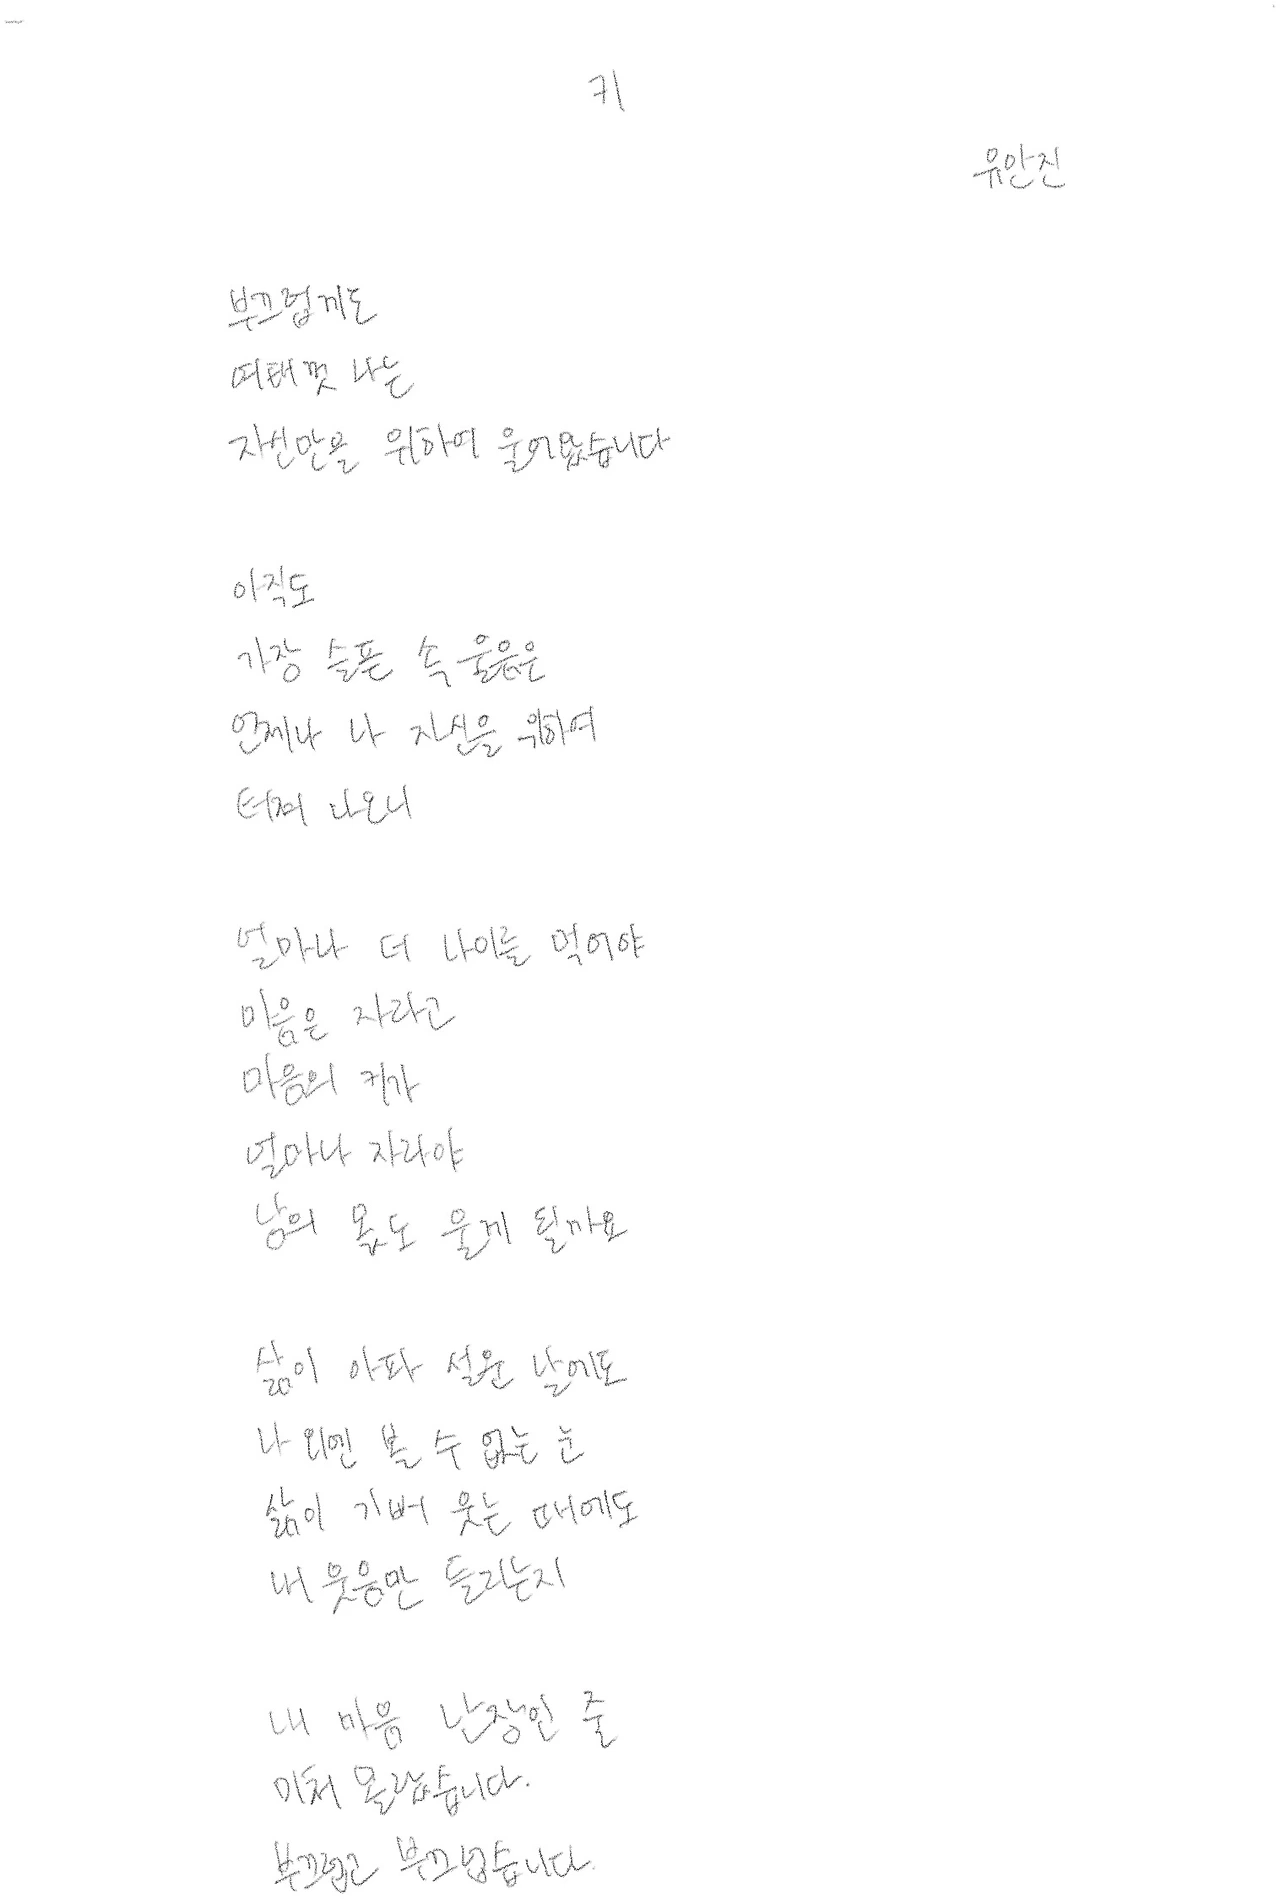 키
유안진
부끄럽게도
여태껏 나는
자신만을 위하여 울어왔습니다
아직도
가장 슬픈 속 울음은
언제나 나 자신을 위하여
터져 나오니
얼마나 더 나이를 먹어야
마음은 자라고
마음의 키가
얼마나 자라야
남의 몫도 울게 될까요
삶이 아파 설운 날에도
나 외엔 볼 수 없는 눈
삶이 기뻐 웃는 때에도
내 웃음만 들리는지
내 마음 난장인 줄
미처 몰랐습니다.
부끄럽고 부끄럽습니다.